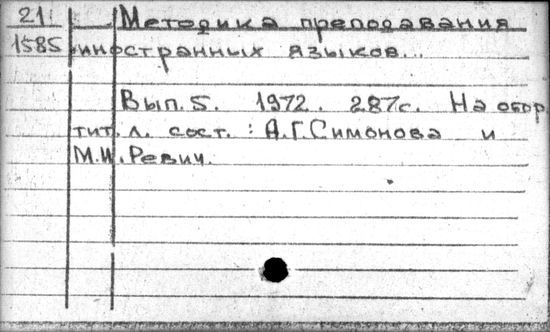 21 Методика преподавания
1585 иностранных языков...
Вып. 5. 1972. 287с. На обор
тит. л. сост.: А.Г.Симонова и
М.И.Ревич.